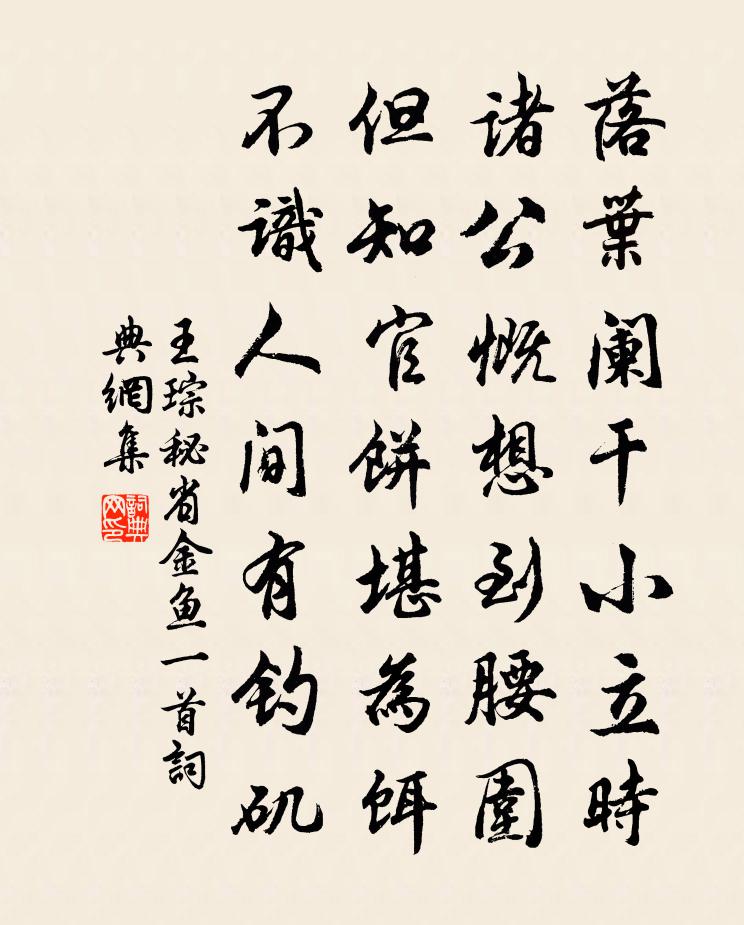 落葉闌干小立時
諸公慨想到腰圍
但知官餅堪為餌
不識人間有釣矶
王琮秘省金魚一首詞
典網集
詞典
网印